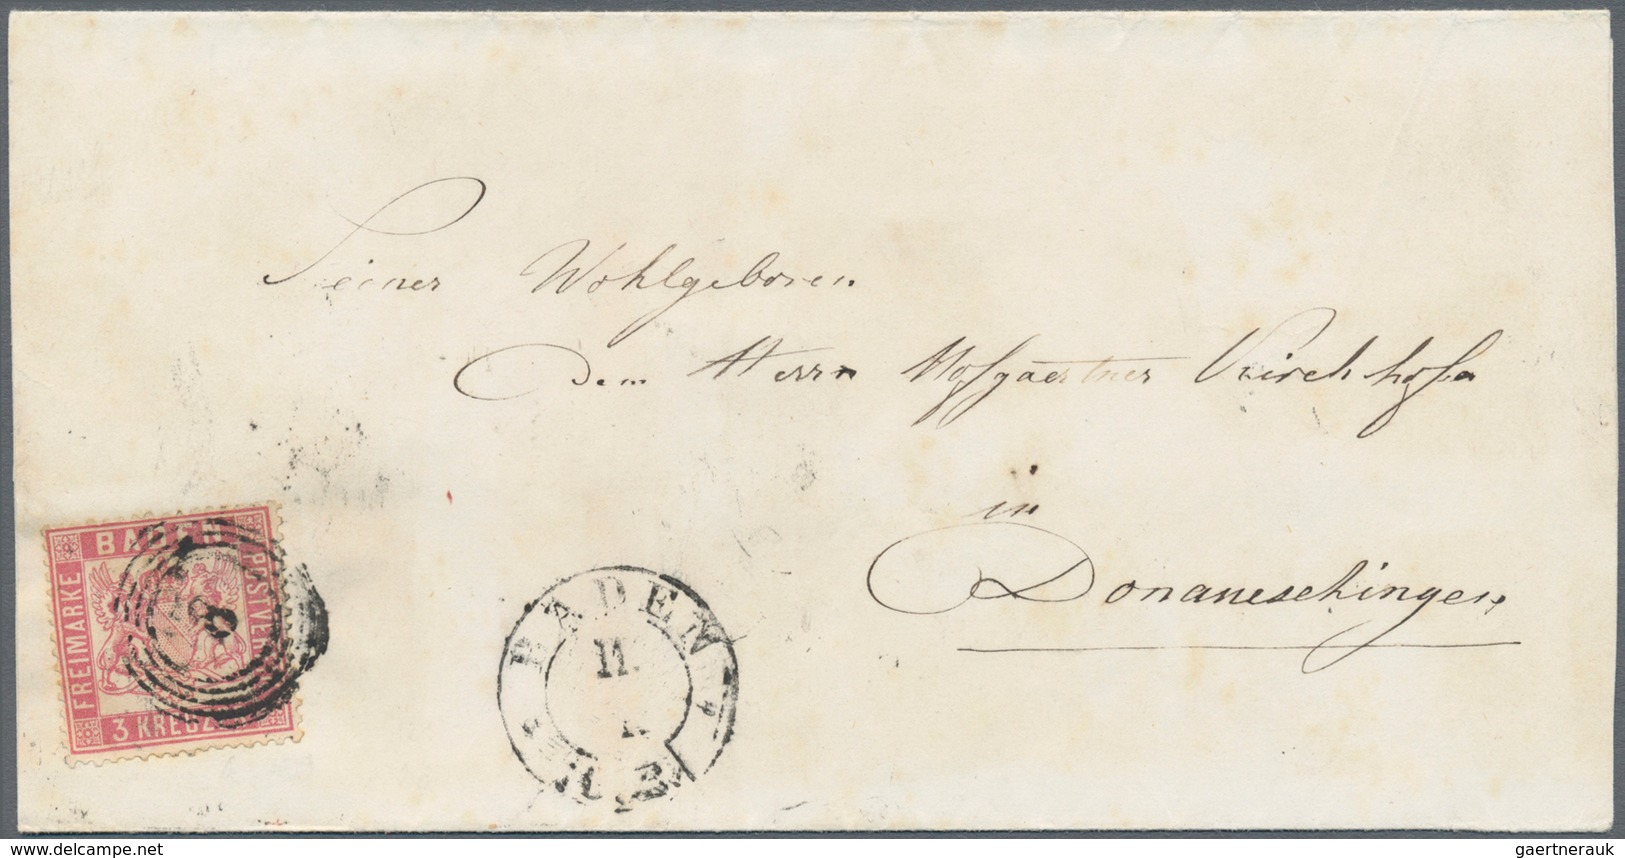 Seiner Wohlgeboren
dem Herrn Hofgaertner Kirchhofer
in
Donaueschingen
BADEN
FREIMARKE
POSTVEREIN
3 KREUZER
8
BADEN
11.
www.delcampe.net
gaertnerauk